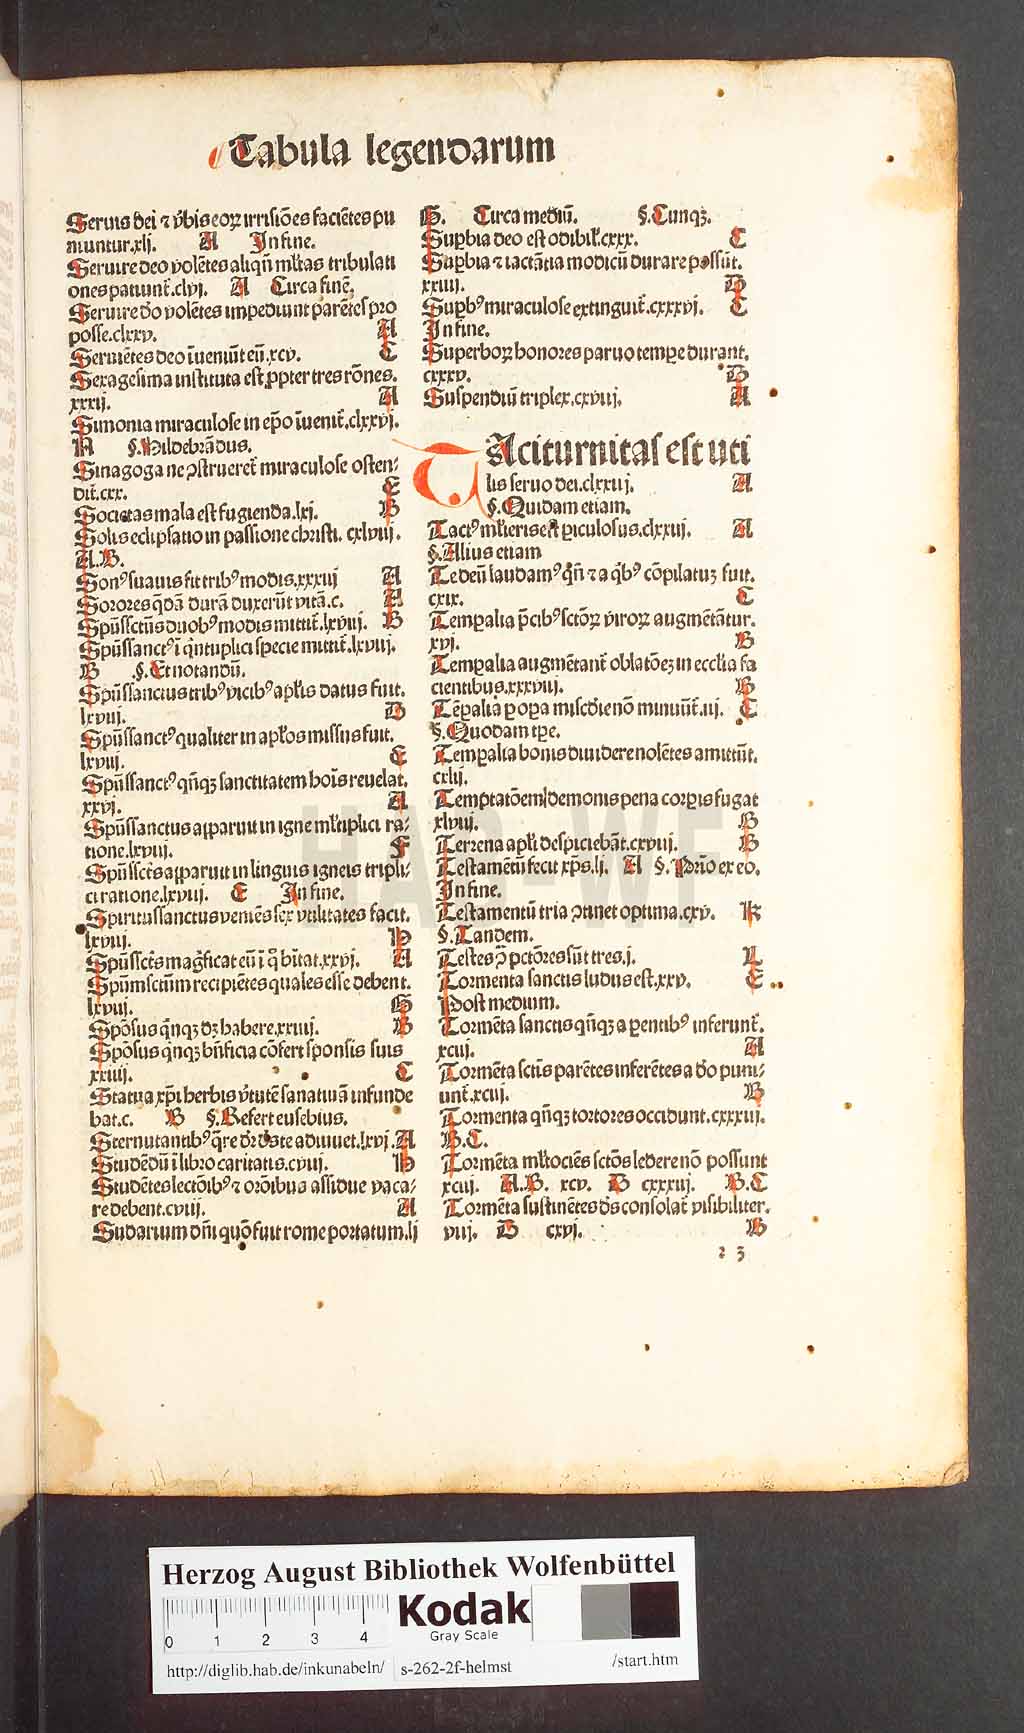 Tabula legendarum
Seruis dei ⁊ v̓bis eoꝝ irrisiões faciẽtes pu
niuntur.xlj. A In fine.
Seruire deo volẽtes aliqñ ml̓tas tribulati
ones patiunt̃.clvj. A Circa finẽ.
Seruire do volẽtes impediunt parẽtes pro
posse.clxxv. A
Seruiẽtes deo ĩueniũt eũ.xcv. C
Sexagesima instituta est ꝓpter tres rõnes.
xxxij. A
Simonia miraculose in ep̃o ĩuenit̃.clxxvj.
N §.Hildebrãdus.
Sinagoga ne ꝯstrueret̃ miraculose osten⸗
dit̃.cxx. E
Societas mala est fugienda.lxj. B
Solis eclipsatio in passione christi. cxlviij.
A.B.
Sonꝰ suauis fit tribꝰ modis.xxxiij A
Sorores q̃dã durã duxerũt vitã.c. A
Spũssctũs duobꝰ modis mittit̃.lxviij. B
Spũssanctꝰ ĩ qntuplici specie mittit̃.lxviij.
B §.Et notandũ.
Spũssanctus tribꝰ vicibꝰ apl̓is datus fuit.
lxviij. D
Spũssanctꝰ qualiter in apl̓os missus fuit.
lxviij. E
Spũssanctꝰ qñqꝫ sanctitatem hoĩs reuelat.
xxvj. A
Spũssanctus apparuit in igne ml̓tiplici ra⸗
tione.lxviij. F
Spũsscts apparuit in linguis igneis tripli⸗
ci ratione.lxviij. E In fine.
Spiritussanctus veniẽs sex vtilitates facit.
lxviij. P
Spũsscts mag̃ficat eũ ĩ q̊ hĩtat.xxvj. A
Spũmsctũm recipiẽtes quales esse debent.
lxviij. H
Spõsus qnqꝫ dꝫ habere.xxiiij. B
Spõsus qnqꝫ bñficia cõfert sponsis suis
xxiiij. C
Statua xp̃i herbis v̓tutẽ sanatiuã infunde
bat.c. B §.Refert eusebius.
Sternutantibꝰ q̃re dr̃ xp̃ste adiuuet.lxvj.A
Studẽdũ ĩ libro caritatis.cviij. H
Studẽtes lectõibꝰ ⁊ orõibus assidue vaca⸗
re debent.cviij. A
Sudarium dñi quõ fuit rome portatum.lj
H. Circa mediũ. §.Cunqꝫ.
Supꝑbia deo est odibil̓.cxxx. C
Supꝑbia ⁊ iactãtia modicũ durare possũt.
xxiiij. D
Supꝑbꝰ miraculose extinguit̃.cxxxvj. C
In fine.
Superboꝝ honores paruo tempꝑe durant.
cxxxv. D
Suspendiũ triplex.cxviij. A
TAciturnitas est uti
lis seruo dei.clxxij. A
§.Quidam etiam.
Tactꝰ ml̓ieris est ꝑiculosus.clxxiij. A
§.Allius etiam
Te deũ laudamꝰ qñ ⁊ a qbꝰ cõpilatuꝫ fuit.
cxix. C
Tempꝑalia p̃cibꝰ sctõꝝ viroꝝ augmẽtãtur.
xvj. B
Tempꝑalia augmẽtant̃ oblatõeꝫ in ecclĩa fa
cientibus.xxxviij. B
Tẽpꝑalia ꝓ oꝑa mis̃cdie nõ minuũt̃.iij. C
§.Quodam tꝑe.
Tempꝑalia bonis diuidere nolẽtes amittũt.
cxliij.
Temptatõem demonis pena corꝑis fugat
xlviij. B
Terrena apl̓i despiciebãt.cxviij. B
Testamẽtũ fecit xp̃s.lj. A §.Primo ex eo.
In fine.
Testamentũ tria ꝯtinet optima.cxv. K
§.Tandem.
Testes ꝯ̃ pctõres sũt tres.j. L
Tormenta sanctis ludus est.xxv. E
Post medium.
Tormẽta sanctis qñqꝫ a ꝑentibꝰ inferunt̃.
xcij. A
Tormẽta sctĩs parẽtes inferẽtes a do puni⸗
unt̃.xcij. B
Tormenta qñqꝫ tortores occidunt.cxxxiij.
B.C.
Tormẽta ml̓tociẽs sctõs ledere nõ possunt
xcij. A.B. xcv. D cxxxiij. B.C
Tormẽta sustinẽtes ds consolat̃ visibiliter.
viij. D cxvj. B
2 3
HAB-WF
Herzog August Bibliothek Wolfenbüttel
0 1 2 3 4
Kodak
Gray Scale
http://diglib.hab.de/inkunabeln/ s-262-2f-helmst /start.htm